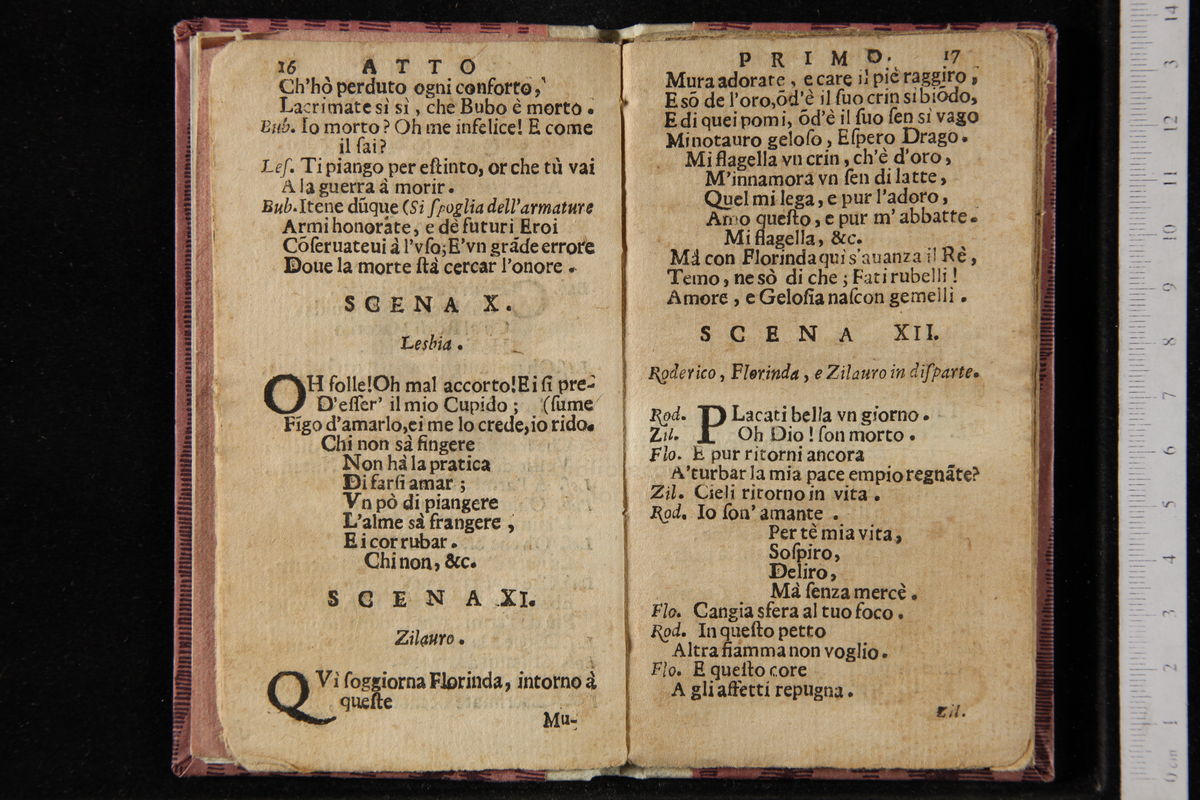 16 ATTO
Ch'hò perduto ogni conforto,
Lacrimate sì sì, che Bubo è morto.
Bub. Io morto? Oh me infelice! E come
il ſai?
Leſ. Ti piango per eſtinto, or che tù vai
A la guerra à morir.
Bub. Itene dũque (Si ſpoglia dell'armature
Armi honorate, e de futuri Eroi
Cõſeruateui à l'vſo; E'vn grãde errore
Doue la morte ſtà cercar l'onore.
SCENA X.
Lesbia.
OH folle! Oh mal accorto! Ei ſi pre-
D'eſſer' il mio Cupido; (ſume
Fĩgo d'amarlo, ei me lo crede, io rido.
Chi non sà fingere
Non hà la pratica
Di farſi amar;
Vn pò di piangere
L'alme sà frangere,
E i cor rubar.
Chi non, &c.
SCENA XI.
Zilauro.
QVì ſoggiorna Florinda, intorno à
queſte
Mu-
PRIMO. 17
Mura adorate, e care il piè raggiro,
E sõ de l'oro, õd'è il ſuo crin si biõdo,
E di quei pomi, õd'è il ſuo ſen sì vago
Minotauro geloſo, Eſpero Drago.
Mi flagella vn crin, ch'è d'oro,
M'innamora vn ſen di latte,
Quel mi lega, e pur l'adoro,
Amo queſto, e pur m'abbatte.
Mi flagella, &c.
Mà con Florinda quì s'auanza il Rè,
Temo, ne sò di che; Fati rubelli!
Amore, e Geloſia naſcon gemelli.
SCENA XII.
Roderico, Florinda, e Zilauro in diſparte.
Rod. PLacati bella vn giorno.
Zil. Oh Dio! ſon morto.
Flo. E pur ritorni ancora
A' turbar la mia pace empio regnãte?
Zil. Cieli ritorno in vita.
Rod. Io ſon' amante.
Per tè mia vita,
Soſpiro,
Deliro,
Mà ſenza mercè.
Flo. Cangia sfera al tuo foco.
Rod. In queſto petto
Altra fiamma non voglio.
Flo. E queſto core
A gli affetti repugna.
Zil.
14
13
12
11
10
9
8
7
6
5
4
3
2
1
0 cm